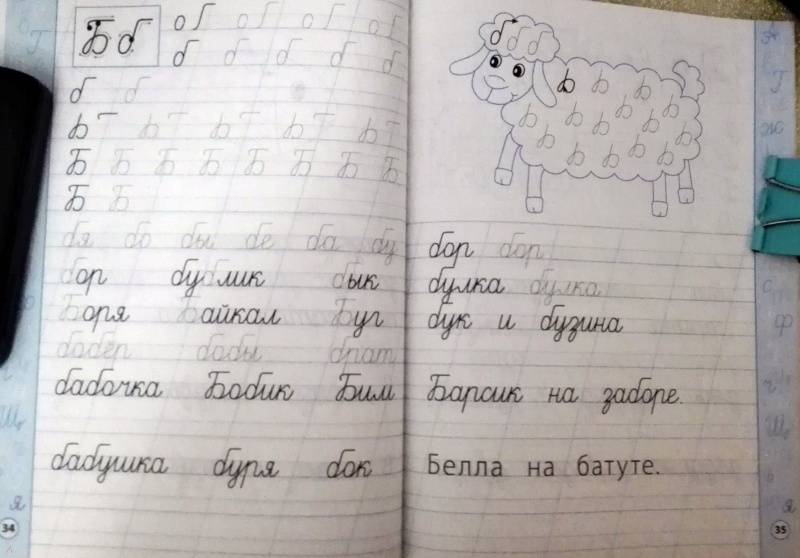 Б б
б б б б б
б б
Б Б Б Б Б Б Б Б
Б Б
бя бо бы бе ба бу
бор бублик бык
Боря Байкал Буг
бобёр бобы брат
бабочка Бобик Бим
бабушка буря бок
34
б б б
бор бор
булка булка
бук и бузина
Барсик на заборе.
Белла на батуте.
35